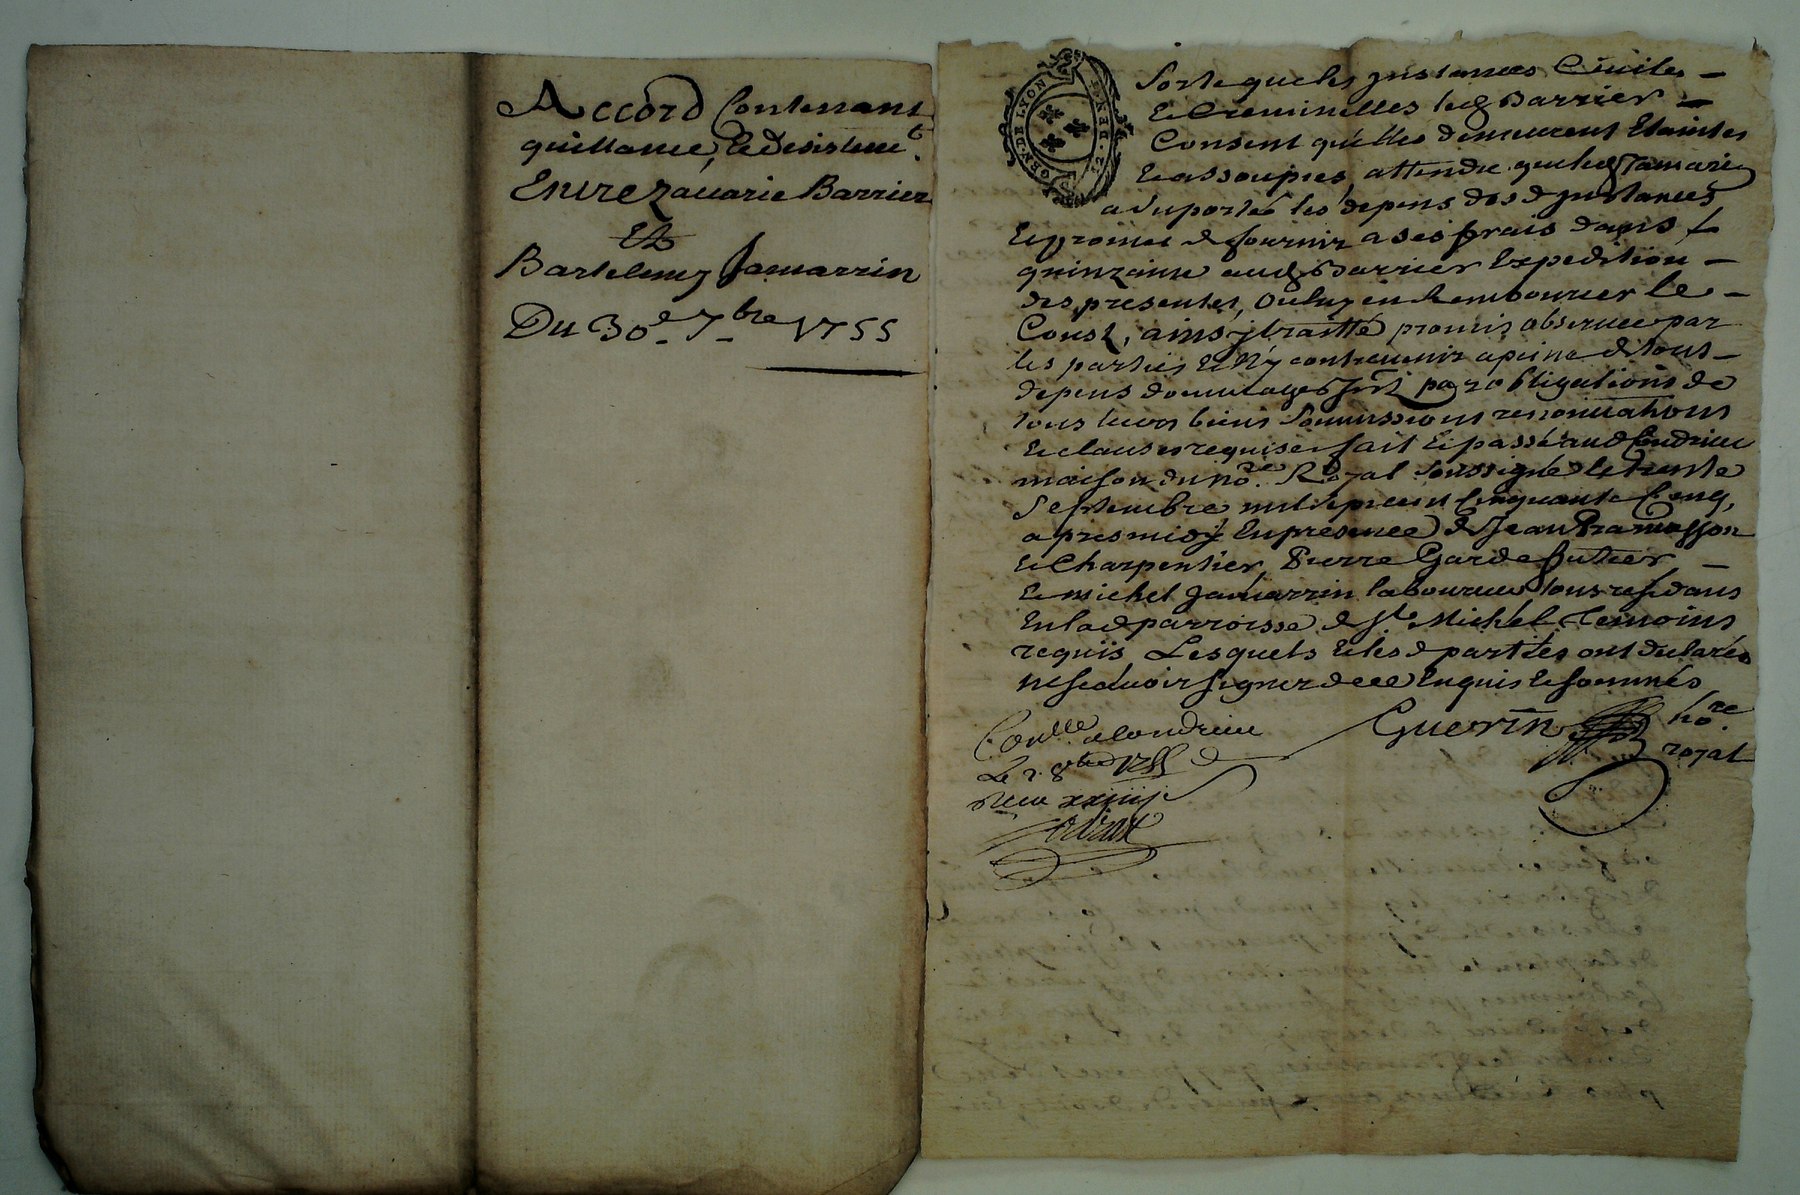 Accord Contenant
quittance, & desisteme.t
Entre Zacarie Barrier
Et
Bartelemy Jamarrin
Du 30e 7bre 1755
GEN. DE LYON
2. DEN.
Sorte que les jnstances Civiles
& Creminelles led Barrier
Consent qu'elles demeurent Etaintes
& assoupies attendu que led Jamarin
a suporté les depens des d jnstances
& promet de fournir a ses frais dans
quinzaine aud Barrier Expedition
des presentes, ou luy en Rembourcer le
Coust, ainsy traitté promis observer par
les parties & N'y contrevenir a peine de tous
depens dommages par obligations de
tous leurs biens Soumissions renonciations
& clauses requises fait & passé aud Condrieu
maison du no.re Royal soussigné le trente
Septembre mil sept cent Cinquante Cinq,
apres midy En presence de Jean
Charpentier, Pierre Garde
& michel Jamarrin laboureur tous residans
En lad parroisse de St Michel Temoins
requis Lesquels & les d parties ont declarés
ne scavoir signer de ce Enquis & sommés
Guerin no.re
royal
Con.lle a Condrieu
Le 2. 8bre 1755
Recu xxiiij s